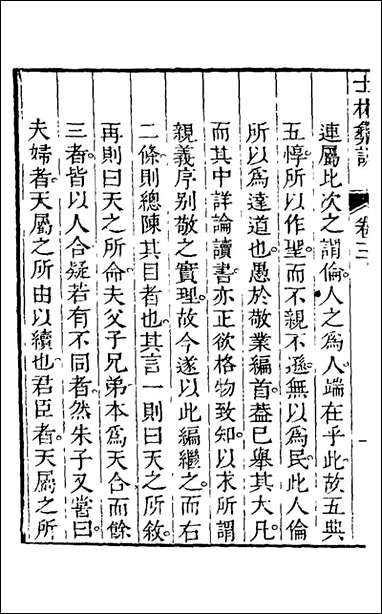 士林彝訓
卷三
連屬比次之謂倫人之為人端在乎此故五典
五惇所以作聖而不親不遜無以為民此人倫
所以為達道也愚於敬業編首葢已舉其大凡
而其中詳論讀書亦正欲格物致知以求所謂
親義序别敬之實理故今遂以此編繼之而右
二條則總陳其目者也其言一則曰天之所敘
再則曰天之所命夫父子兄弟本為天合而餘
三者皆以人合疑若有不同者然朱子又嘗曰
夫婦者天屬之所由以續也君臣者天屬之所